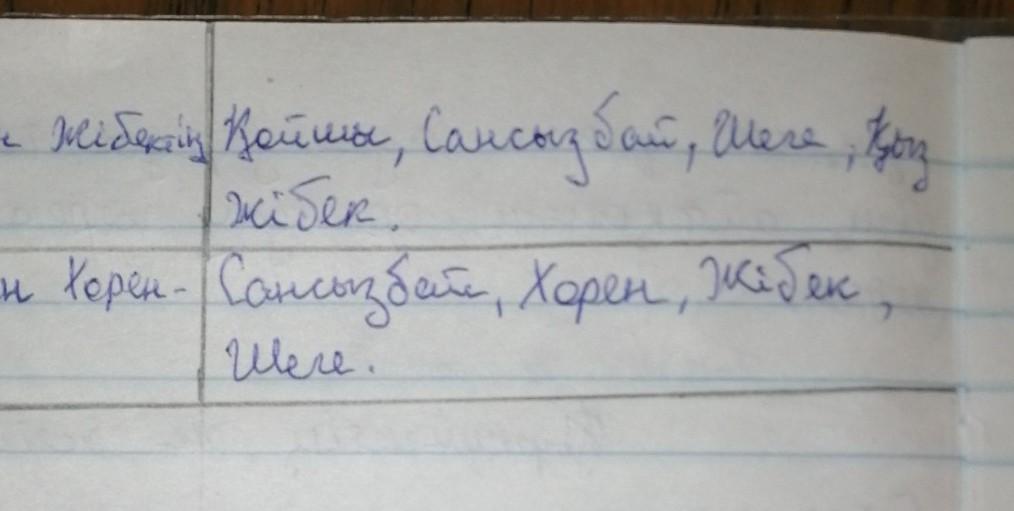 Жібектің Қойшы, Сансызбай, Шеге, Қыз
Жібек.
н Хорен- Сансызбай, Хорен, Жібек,
Шеге.